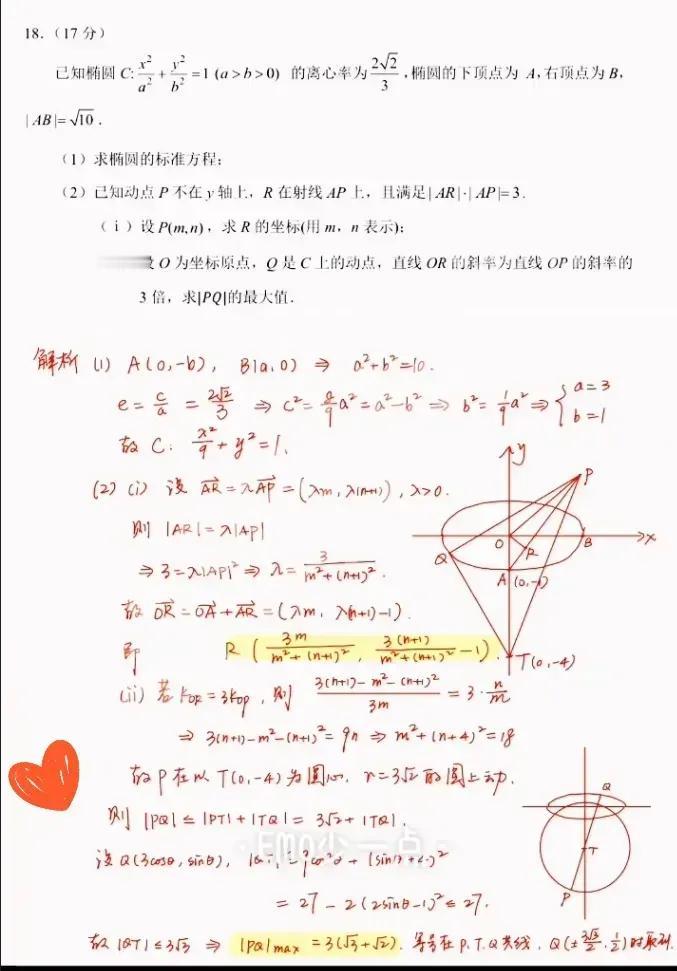 18.（17 分）
已知椭圆 C: x²/a² + y²/b² = 1 (a > b > 0) 的离心率为 2√2/3 ，椭圆的下顶点为 A, 右顶点为 B,
|AB|= √10 .
（1）求椭圆的标准方程;
（2）已知动点 P 不在 y 轴上，R 在射线 AP 上，且满足|AR|·|AP|=3.
（ⅰ）设 P(m,n)，求 R 的坐标(用 m，n 表示);
O 为坐标原点，Q 是 C 上的动点，直线 OR 的斜率为直线 OP 的斜率的
3 倍，求|PQ|的最大值.
解析 (1) A(0,-b), B(a,0) ⇒ a²+b²=10.
e = c/a = 2√2/3 ⇒ c² = 8/9 a² = a²-b² ⇒ b² = 1/9 a² ⇒ { a=3 b=1
故 C: x²/9 + y² = 1.
(2) (i) 设 AR = λAP = (λm, λ(n+1)), λ>0.
则 |AR| = λ|AP|
⇒ 3 = λ|AP|² ⇒ λ = 3/(m²+(n+1)²).
故 OR = OA + AR = (λm, λ(n+1)-1).
即 R ( 3m/(m²+(n+1)²), 3(n+1)/(m²+(n+1)²) -1 ).
(ii) 若 kOR = 3kOP, 则 (3(n+1)-m²-(n+1)²)/3m = 3·n/m
⇒ 3(n+1)-m²-(n+1)² = 9n ⇒ m²+(n+4)² = 18
故 P 在以 T(0,-4) 为圆心, r=3√2 的圆上动.
则 |PQ| ≤ |PT|+|TQ| = 3√2+|TQ|.
EMO少一点
设 Q(3cosθ, sinθ), = 9cos²θ + (sinθ+4)²
= 27 - 2(2sinθ-1)² ≤ 27.
故 |QT| ≤ 3√3 ⇒ |PQ|max = 3(√3+√2). 等号在 P,T,Q 共线, Q(±3√3/2, 1/2) 时取到.
y
P
O
B
x
Q
R
A
(0,-1)
T(0,-4)
Q
T
P